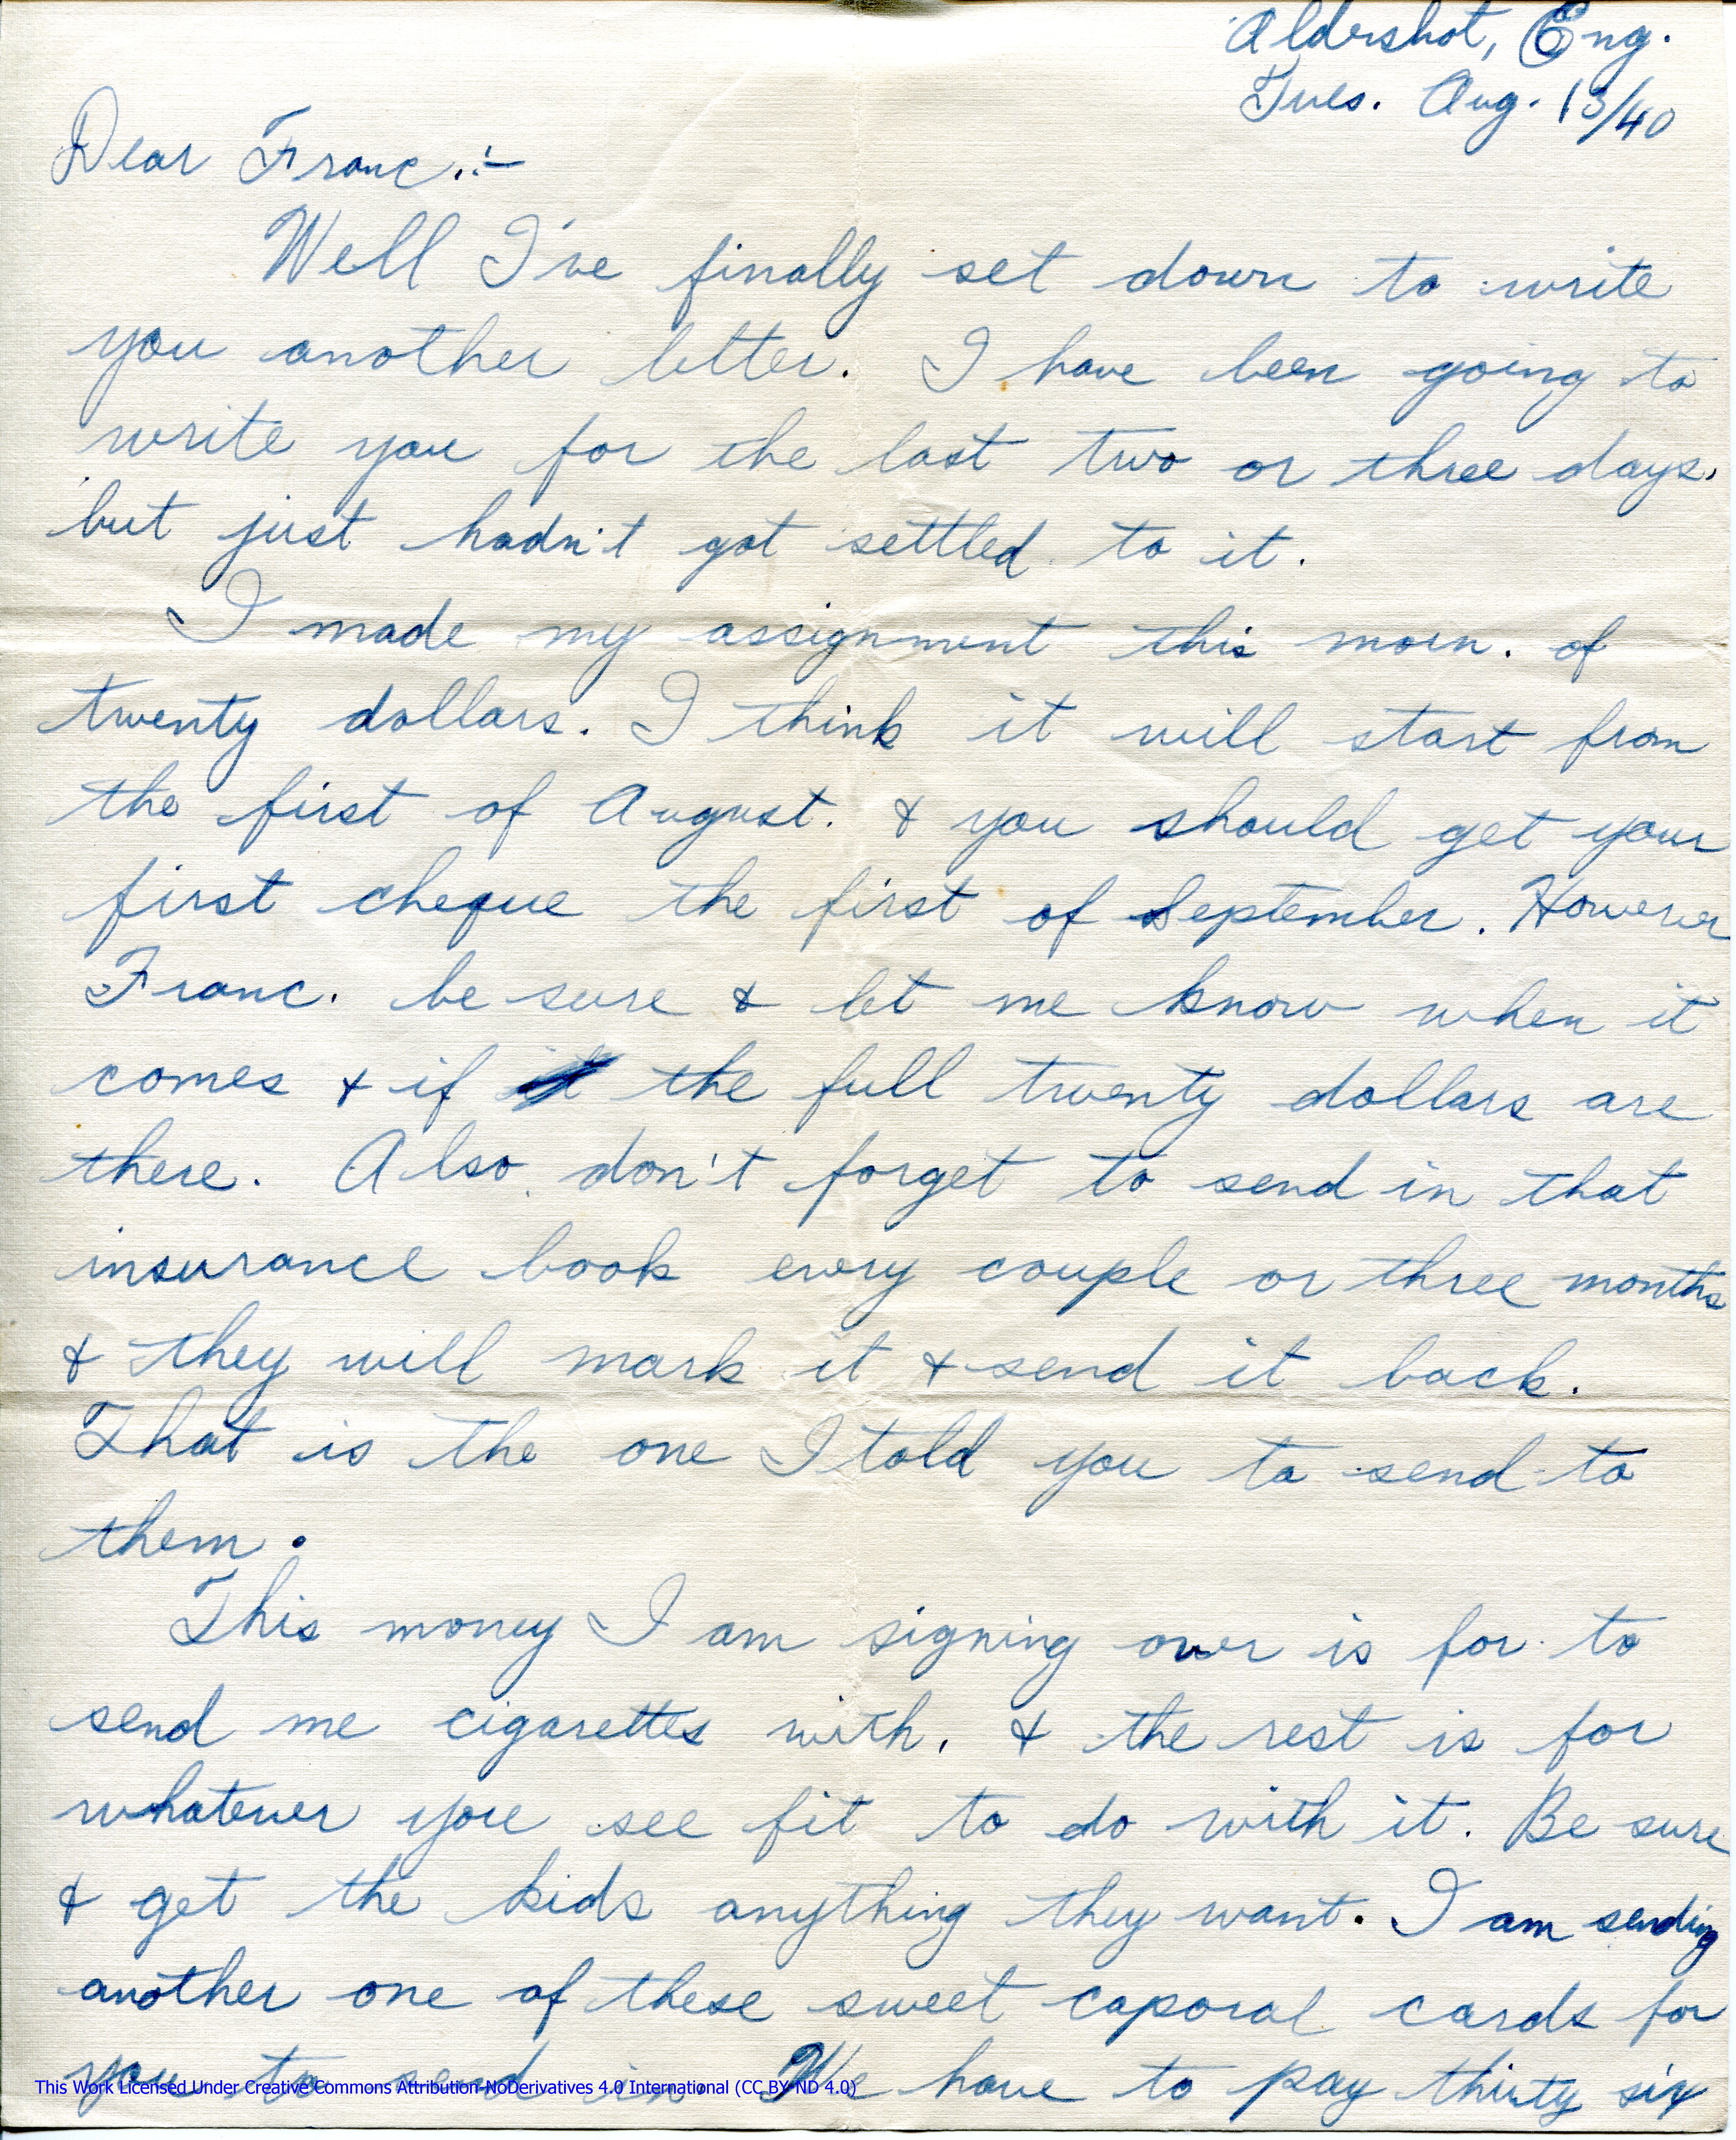 Aldershot, Eng.
Tues. Aug. 13/40
Dear Franc.:-
Well I've finally set down to write
you another letter. I have been going to
write you for the last two or three days.
but just hadn't got settled to it.
I made my assignment this morn. of
twenty dollars. I think it will start from
the first of August. & you should get your
first cheque the first of September. However
Franc. be sure & let me know when it
comes & if the full twenty dollars are
there. Also don't forget to send in that
insurance book every couple or three months
& they will mark it & send it back.
That is the one I told you to send to
them.
This money I am signing over is for to
send me cigarettes with. & the rest is for
whatever you see fit to do with it. Be sure
& get the kids anything they want. I am sending
another one of these sweet caporal cards for
you to send in. We have to pay thirty six
This Work Licensed Under Creative Commons Attribution-NoDerivatives 4.0 International (CC BY-ND 4.0)